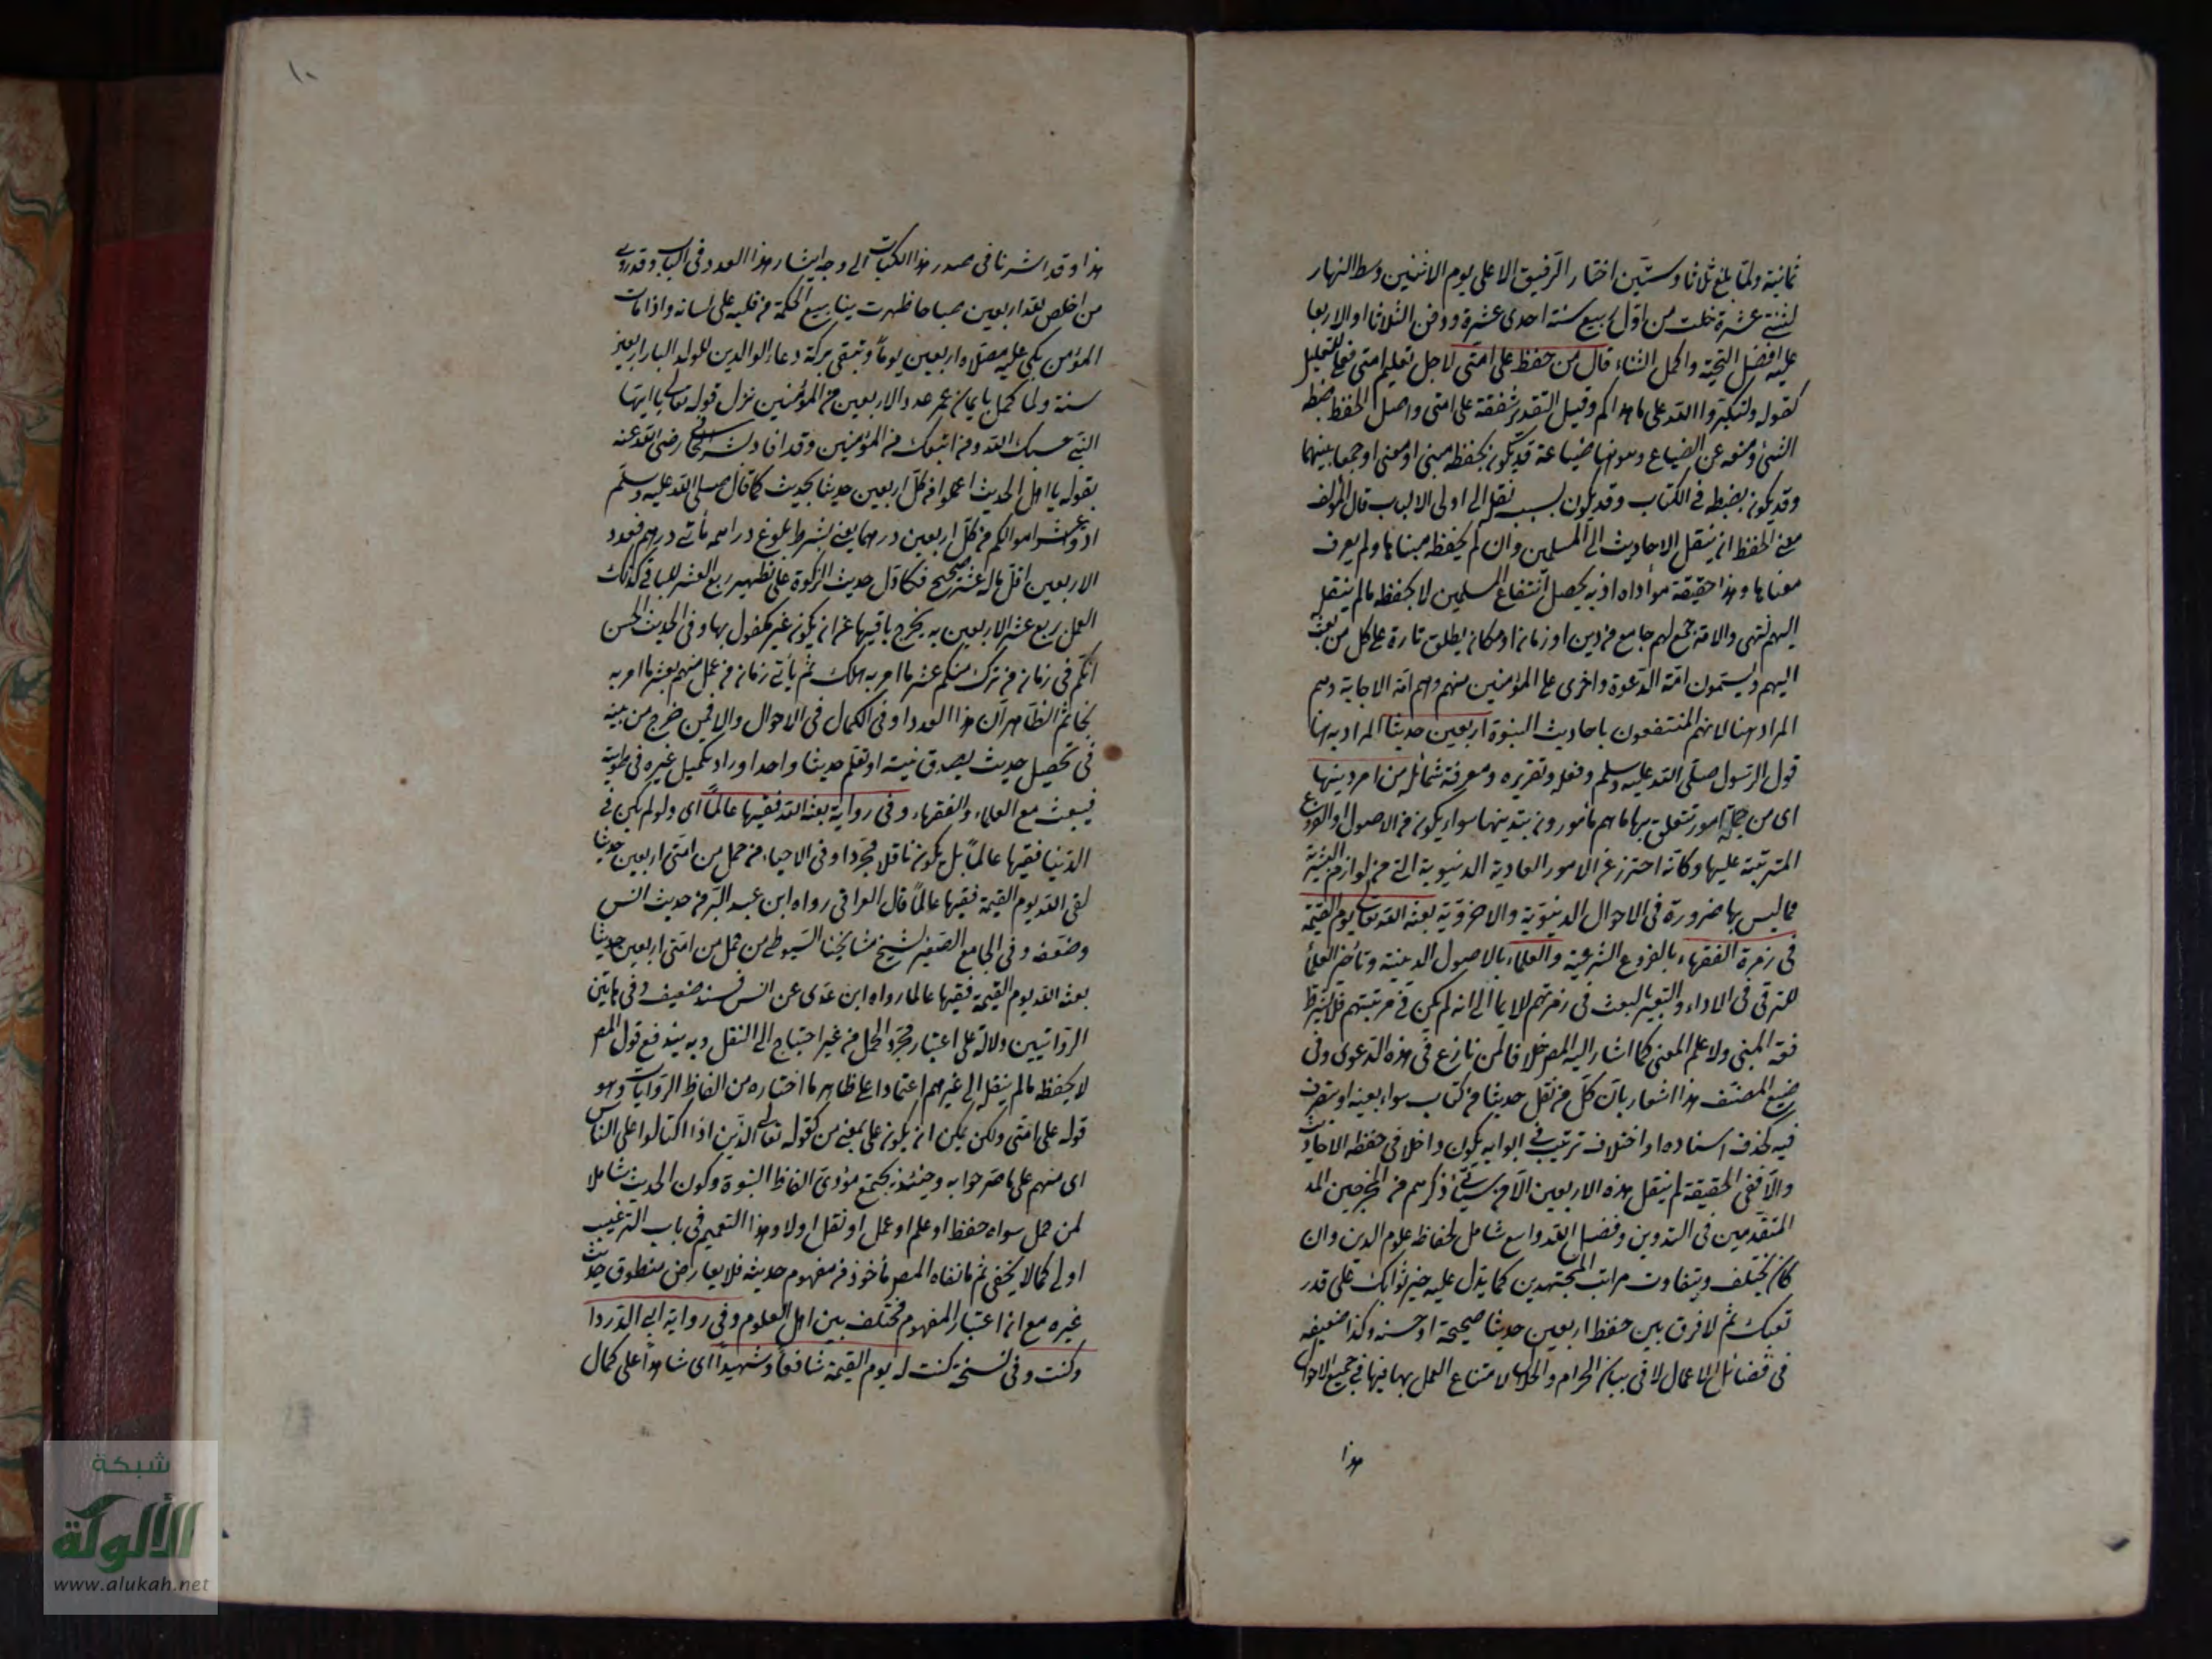 ثمانية ولما بلغ ثلاثا وستين اختار الرفيق الاعلى يوم الاثنين وسط النهار
لثنتي عشرة خلت من اول ربيع سنة احدى عشرة ودفن الثلاثا او الاربعا
عليه افضل التحية واكمل الثناء قال من حفظ على امتى لاجل تعليم امتى فعلى للتعليل
كقوله ولتكبروا الله على ما هداكم وقيل التقدير شفقة على امتى واصل الحفظ ضبط
الشئ ومنعه عن الضياع وصونها ضياعة قد يكون بحفظه مبنى او معنى او جمعا بينهما
وقد يكون بضبطه فى الكتاب وقد يكون بسبب نقله الى اولى الالباب قال المؤلف
معنى الحفظ ان ينقل الاحاديث الى المسلمين وان لم يحفظه مبناها ولم يعرف
معناها وهذا حقيقة مؤاداه اذ به يحصل انتفاع المسلمين لا بحفظه ما لم ينقله
اليهم انتهى والامة جمع لهم جامع من دين او زمان او مكان يطلق تارة على كل من بعث
اليهم ويسمون امة الدعوة واخرى على المؤمنين منهم وهم امة الاجابة وهم
المراد هنا لانهم المنتفعون باحاديث النبوة اربعين حديثا المراد به هنا
قول الرسول صلى الله عليه وسلم وفعله وتقريره ومعرفة شمائله من امر دينها
اى من جملة امور تتعلق بها ما هم مأمورون بتدينها سواء يكون من الاصول او الفروع
المترتبة عليها وكانه احترز عن الامور العادية الدنيوية التى من لوازم البشرية
مما ليس بها ضرورة فى الاحوال الدينوية والاخروية بعثه الله تعالى يوم القيمة
فى زمرة الفقهاء بالفروع الشرعية والعلماء بالاصول الدينية وتأخر العلماء
للترقى فى الاداء والتعبير بالبعث فى زمرتهم للايما الى انه لم يكن فى مرتبتهم فلا يشترط
فقه المبنى ولا علم المعنى كما اشار اليه المص خلافا لمن نازع فى هذه الدعوى وفى
صنيع المصنف هذا اشعار بان كل من نقل حديثا من كتاب سواء بعينه او بتصرف
فيه كحذف اسناده او اختلاف ترتيب فى ابوابه يكون داخلا فى حفظه الاحاديث
والا ففى الحقيقة لم ينقل هذه الاربعين الا من سيأتى ذكرهم من المخرجين
المتقدمين فى التدوين وفضل الله واسع شامل لحفاظ علوم الدين وان
كان يختلف ويتفاوت مراتب المجتهدين كما يدل عليه خبر ثوابك على قدر
تعبك ثم لا فرق بين حفظ اربعين حديثا صحيحة او حسنة وكذا ضعيفة
فى فضائل الاعمال لا فى بيان الحرام والحلال لامتناع العمل بها فيها فى جميع الاحوال
هذا
١٠
هذا وقد اشرنا فى صدر هذا الكتاب الى وجه ايثار هذا العدد فى الباب وقد روى
من اخلص لله اربعين صباحا ظهرت ينابيع الحكمة من قلبه على لسانه واذا مات
المؤمن بكى عليه مصلاه اربعين يوما وتبقى بركة دعاء الوالدين للولد البار اربعين
سنة ولما كمل بايمان عمر عدد الاربعين من المؤمنين نزل قوله تعالى يا ايها
النبى حسبك الله ومن اتبعك من المؤمنين وقد افاد بشر الحافى رضى الله عنه
بقوله يا اهل الحديث اعملوا من كل اربعين حديثا بحديث كما قال صلى الله عليه وسلم
ادوا ربع عشر اموالكم من كل اربعين درهما يعنى بشرط بلوغ دراهمه مأتى درهم فعدد
الاربعين اقل ما له عشر صحيح فكما دل حديث الزكوة على تطهير ربع العشر للباقى كذلك
العمل ربع عشر الاربعين به يخرج باقيها عن ان يكون غير مكفول بها وفى الحديث الحسن
انكم فى زمان من ترك منكم عشر ما امر به هلك ثم يأتى زمان من عمل منهم بعشر ما امر به
نجا ثم الظاهر ان هذا العدد اوفى الكمال فى الاحوال والا فمن خرج من بيته
فى تحصيل حديث بصدق نيته او تعلم حديثا واحدا وراد تكميل غيره فى طويته
فيبعث مع العلماء والفقهاء وفى رواية بعثه الله فقيها عالما اى ولو لم يكن فى
الدنيا فقيها عالما بل يكون ناقلا مجردا وفى الاحياء من حمل من امتى اربعين حديثا
لقى الله يوم القيمة فقيها عالما قال العراقى رواه ابن عبد البر من حديث انس
وضعفه وفى الجامع الصغير لشيخ مشايخنا السيوطى من حمل من امتى اربعين حديثا
بعثه الله يوم القيمة فقيها عالما رواه ابن عدى عن انس بسند ضعيف وفى هاتين
الروايتين دلالة على اعتبار مجرد الحمل من غير احتياج الى النقل وبه يندفع قول المص
لا يحفظه ما لم ينقله الى غيرهم اعتمادا على ظاهر ما اختاره من الفاظ الروايات وهو
قوله على امتى ولكن يمكن ان يكون على بمعنى من كقوله تعالى الذين اذا اكتالوا على الناس
اى منهم على ما صرحوا به وحينئذ يجتمع مؤدى الفاظ النبوة وكون الحديث شاملا
لمن حمل سواء حفظ او علم او عمل او نقل اولا وهذا التعميم فى باب الترغيب
اولى كما لا يخفى ثم ما نفاه المص مأخوذ من مفهوم حديثه فلا يعارض منطوق حديث
غيره مع ان اعتبار المفهوم مختلف بين اهل العلوم وفى رواية ابى الدردا
وكنت وفى نسخة كنت له يوم القيمة شافعا وشهيدا اى شاهدا على كمال
شبكة
الألوكة
www.alukah.net